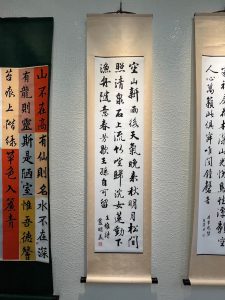 人心萬籟此俱寂惟聞鐘磬音
空山新雨後天氣晚來秋明月松間
照清泉石上流竹喧歸浣女蓮動下
漁舟隨意春芳歇王孫自可留
王維詩
山不在高有仙則名水不在深
有龍則靈斯是陋室惟吾德馨
苔痕上階綠草色入簾青